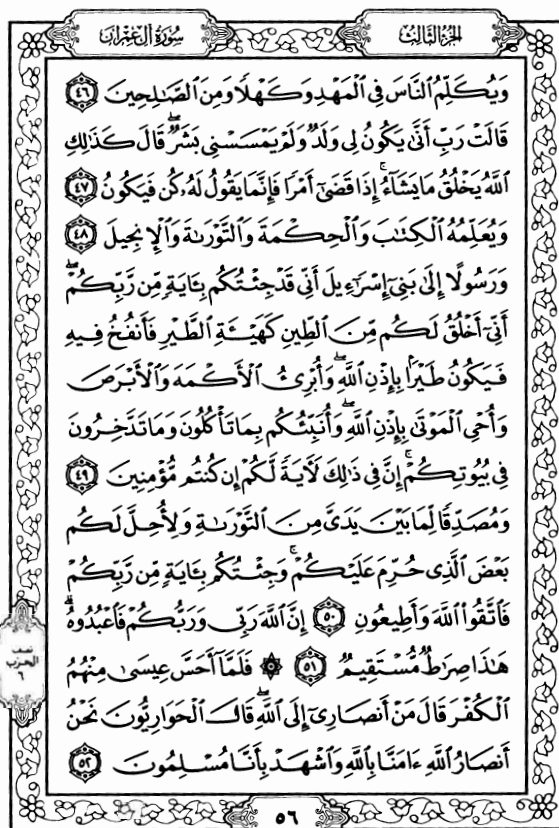 سُورَةُ آلِ عِمْرَان
الجُزْءُ الثَّالِثُ
وَيُكَلِّمُ ٱلنَّاسَ فِى ٱلْمَهْدِ وَكَهْلًا وَمِنَ ٱلصَّـٰلِحِينَ ٤٦
قَالَتْ رَبِّ أَنَّىٰ يَكُونُ لِى وَلَدٌ وَلَمْ يَمْسَسْنِى بَشَرٌ ۖ قَالَ كَذَٰلِكِ
ٱللَّهُ يَخْلُقُ مَا يَشَآءُ ۚ إِذَا قَضَىٰٓ أَمْرًا فَإِنَّمَا يَقُولُ لَهُۥ كُن فَيَكُونُ ٤٧
وَيُعَلِّمُهُ ٱلْكِتَـٰبَ وَٱلْحِكْمَةَ وَٱلتَّوْرَىٰةَ وَٱلْإِنجِيلَ ٤٨
وَرَسُولًا إِلَىٰ بَنِىٓ إِسْرَٰٓءِيلَ أَنِّى قَدْ جِئْتُكُم بِـَٔايَةٍ مِّن رَّبِّكُمْ ۖ
أَنِّىٓ أَخْلُقُ لَكُم مِّنَ ٱلطِّينِ كَهَيْـَٔةِ ٱلطَّيْرِ فَأَنفُخُ فِيهِ
فَيَكُونُ طَيْرًۢا بِإِذْنِ ٱللَّهِ ۖ وَأُبْرِئُ ٱلْأَكْمَهَ وَٱلْأَبْرَصَ
وَأُحْىِ ٱلْمَوْتَىٰ بِإِذْنِ ٱللَّهِ ۖ وَأُنَبِّئُكُم بِمَا تَأْكُلُونَ وَمَا تَدَّخِرُونَ
فِى بُيُوتِكُمْ ۚ إِنَّ فِى ذَٰلِكَ لَـَٔايَةً لَّكُمْ إِن كُنتُم مُّؤْمِنِينَ ٤٩
وَمُصَدِّقًا لِّمَا بَيْنَ يَدَىَّ مِنَ ٱلتَّوْرَىٰةِ وَلِأُحِلَّ لَكُم
بَعْضَ ٱلَّذِى حُرِّمَ عَلَيْكُمْ ۚ وَجِئْتُكُم بِـَٔايَةٍ مِّن رَّبِّكُمْ
فَٱتَّقُوا۟ ٱللَّهَ وَأَطِيعُونِ ٥٠ إِنَّ ٱللَّهَ رَبِّى وَرَبُّكُمْ فَٱعْبُدُوهُ ۗ
هَـٰذَا صِرَٰطٌ مُّسْتَقِيمٌ ٥١ ۞ فَلَمَّآ أَحَسَّ عِيسَىٰ مِنْهُمُ
ٱلْكُفْرَ قَالَ مَنْ أَنصَارِىٓ إِلَى ٱللَّهِ ۖ قَالَ ٱلْحَوَارِيُّونَ نَحْنُ
أَنصَارُ ٱللَّهِ ءَامَنَّا بِٱللَّهِ وَٱشْهَدْ بِأَنَّا مُسْلِمُونَ ٥٢
نصف
الحزب
٦
٥٦